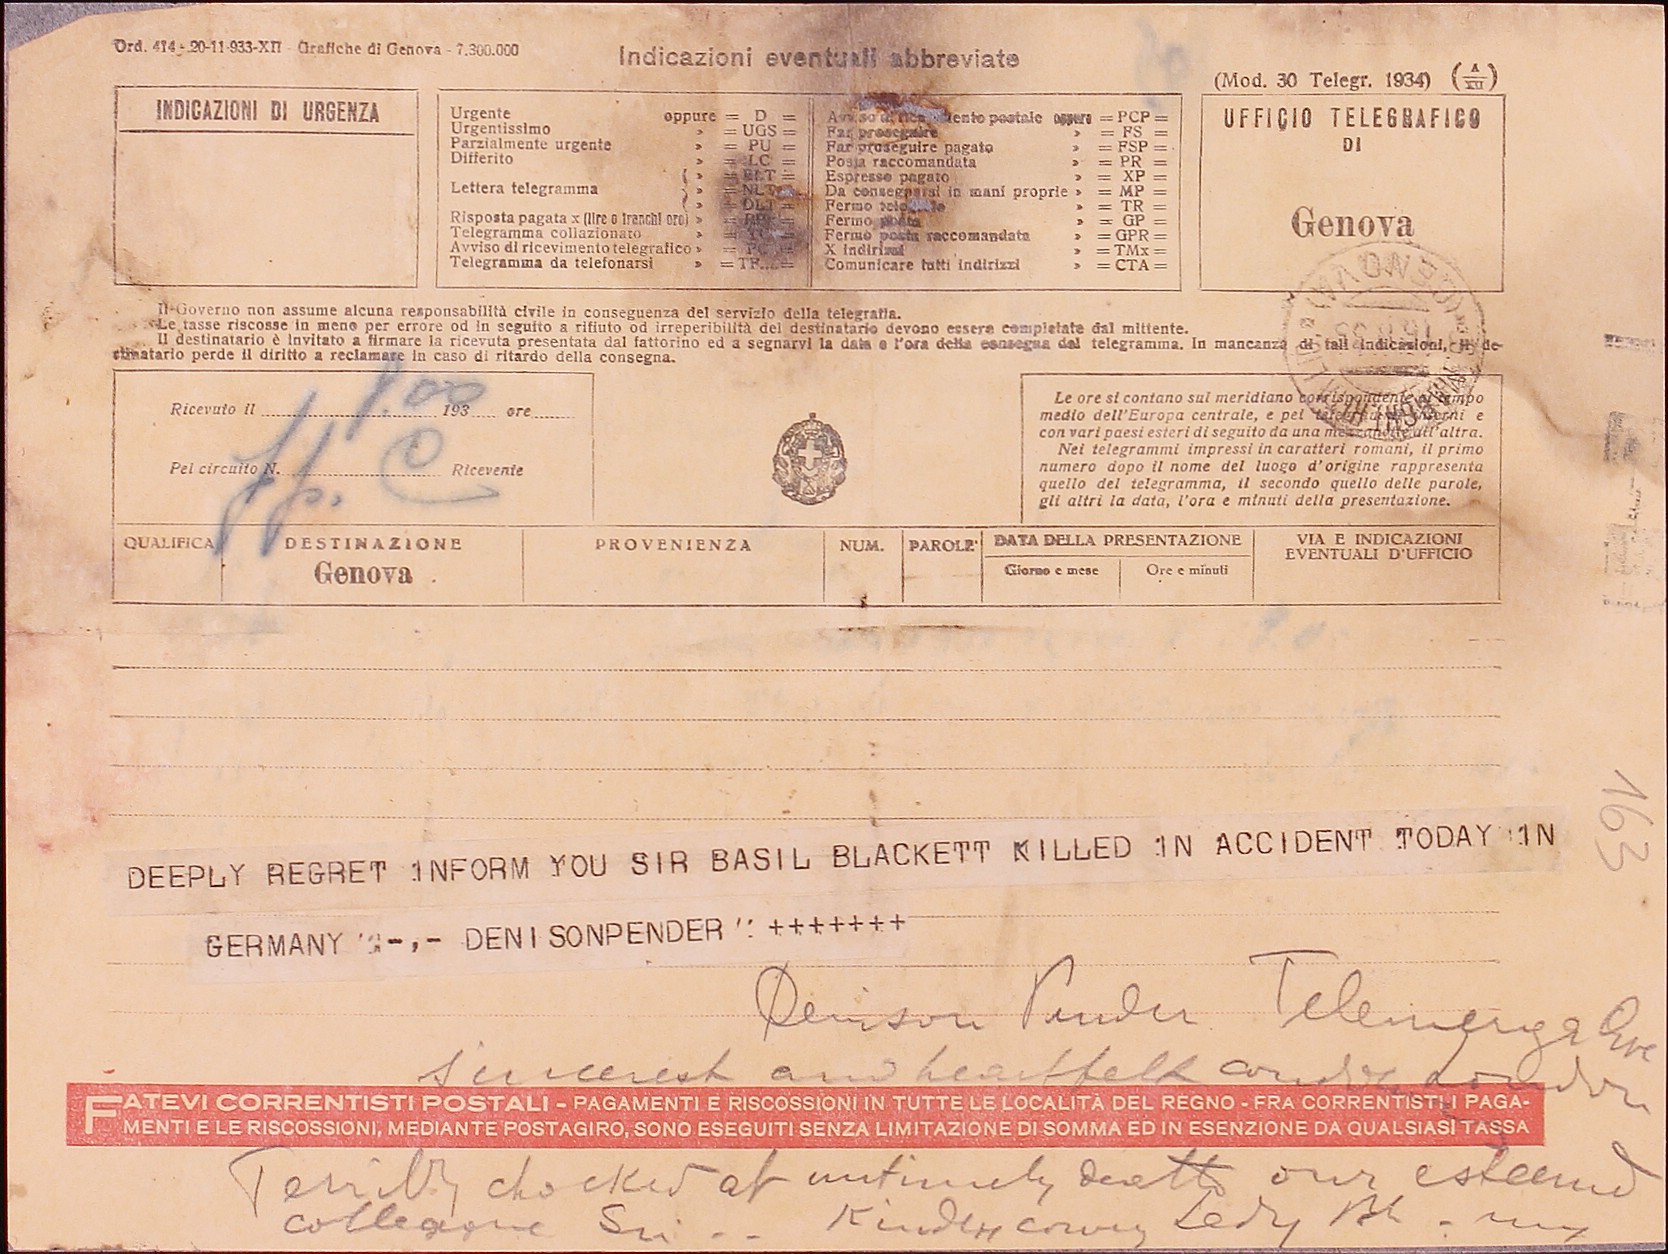 Ord. 414 - 20-11-933-XII - Grafiche di Genova - 7.300.000
Indicazioni eventuali abbreviate
(Mod. 30 Telegr. 1934) (A/XII)
INDICAZIONI DI URGENZA
Urgente oppure = D =
Urgentissimo » = UGS =
Parzialmente urgente » = PU =
Differito » = LC =
» = ELT =
Lettera telegramma » = NLT =
» = DLT =
Risposta pagata x (lire o franchi oro) » = RPx =
Telegramma collazionato » = TC =
Avviso di ricevimento telegrafico » = PC =
Telegramma da telefonarsi » = TF.... =
Avviso di ricevimento postale oppure = PCP =
Far proseguire » = FS =
Far proseguire pagato » = FSP =
Posta raccomandata » = PR =
Espresso pagato » = XP =
Da consegnarsi in mani proprie » = MP =
Fermo telegrafo » = TR =
Fermo posta » = GP =
Fermo posta raccomandata » = GPR =
X indirizzi » = TMx =
Comunicare tutti indirizzi » = CTA =
UFFICIO TELEGRAFICO
DI
Genova
Il Governo non assume alcuna responsabilità civile in conseguenza del servizio della telegrafia.
Le tasse riscosse in meno per errore od in seguito a rifiuto od irreperibilità del destinatario devono essere completate dal mittente.
Il destinatario è invitato a firmare la ricevuta presentata dal fattorino ed a segnarvi la data e l'ora della consegna del telegramma. In mancanza di tali indicazioni, il de-
stinatario perde il diritto a reclamare in caso di ritardo della consegna.
Ricevuto il 193 ore
Pel circuito N. Ricevente
Le ore si contano sul meridiano corrispondente al tempo
medio dell'Europa centrale, e pei telegrammi interni e
con vari paesi esteri di seguito da una mezzanotte all'altra.
Nei telegrammi impressi in caratteri romani, il primo
numero dopo il nome del luogo d'origine rappresenta
quello del telegramma, il secondo quello delle parole,
gli altri la data, l'ora e minuti della presentazione.
QUALIFICA DESTINAZIONE PROVENIENZA NUM. PAROLE DATA DELLA PRESENTAZIONE VIA E INDICAZIONI
EVENTUALI D'UFFICIO
Giorno e mese Ore e minuti
Genova
163
DEEPLY REGRET INFORM YOU SIR BASIL BLACKETT KILLED IN ACCIDENT TODAY IN
GERMANY -,- DENISONPENDER +++++++
Denison Pender Telemerga
sincerest and heartfelt London
FATEVI CORRENTISTI POSTALI - PAGAMENTI E RISCOSSIONI IN TUTTE LE LOCALITÀ DEL REGNO - FRA CORRENTISTI I PAGA-
MENTI E LE RISCOSSIONI, MEDIANTE POSTAGIRO, SONO ESEGUITI SENZA LIMITAZIONE DI SOMMA ED IN ESENZIONE DA QUALSIASI TASSA
Terribly shocked at untimely death our esteemed
colleague Sir .. Kindly convey Lady Bl. my